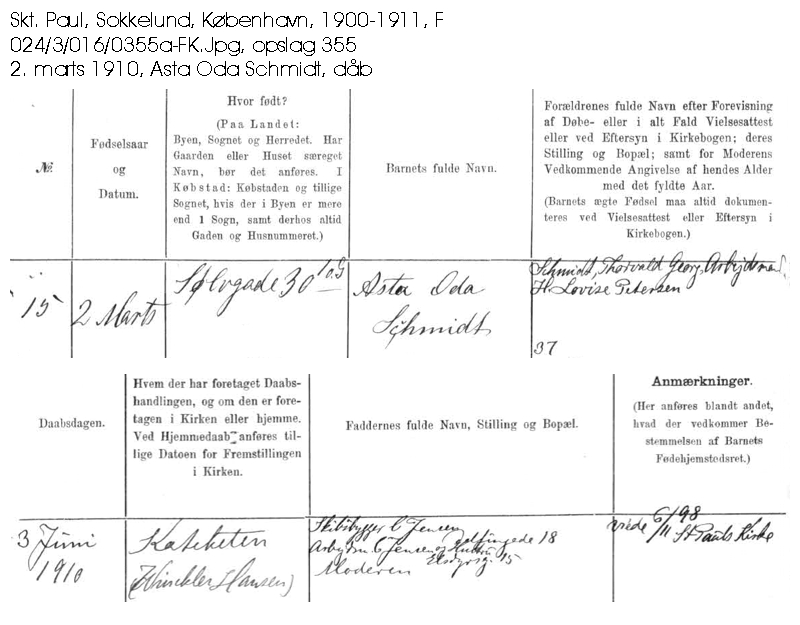 Skt. Paul, Sokkelund, København, 1900-1911, F
024/3/016/0355a-FK.Jpg, opslag 355
2. marts 1910, Asta Oda Schmidt, dåb
№.
Fødselsaar
og
Datum.
Hvor født?
(Paa Landet:
Byen, Sognet og Herredet. Har
Gaarden eller Huset særeget
Navn, bør det anføres. I
Købstad: Købstaden og tillige
Sognet, hvis der i Byen er mere
end 1 Sogn, samt derhos altid
Gaden og Husnummeret.)
Barnets fulde Navn.
Forældrenes fulde Navn efter Forevisning
af Døbe- eller i alt Fald Vielsesattest
eller ved Eftersyn i Kirkebogen; deres
Stilling og Bopæl; samt for Moderens
Vedkommende Angivelse af hendes Alder
med det fyldte Aar.
(Barnets ægte Fødsel maa altid dokumen-
teres ved Vielsesattest eller Eftersyn i
Kirkebogen.)
15
2 Marts
Sølvgade 30
Asta Oda
Schmidt
Schmidt, Thorvald Georg, Arbejdsmand
H. Lovise Petersen
37
Daabsdagen.
Hvem der har foretaget Daabs-
handlingen, og om den er fore-
tagen i Kirken eller hjemme.
Ved Hjemmedaab anføres til-
lige Datoen for Fremstillingen
i Kirken.
Faddernes fulde Navn, Stilling og Bopæl.
Anmærkninger.
(Her anføres blandt andet,
hvad der vedkommer Be-
stemmelsen af Barnets
Fødehjemstedsret.)
3 Juni
1910
Kateketen
(Winckler Hansen)
Skibsbygger C Jensen
18
Arbmd C Jensen og Hustru
15
Moderen
viede 6/11 98
St Pauls Kirke